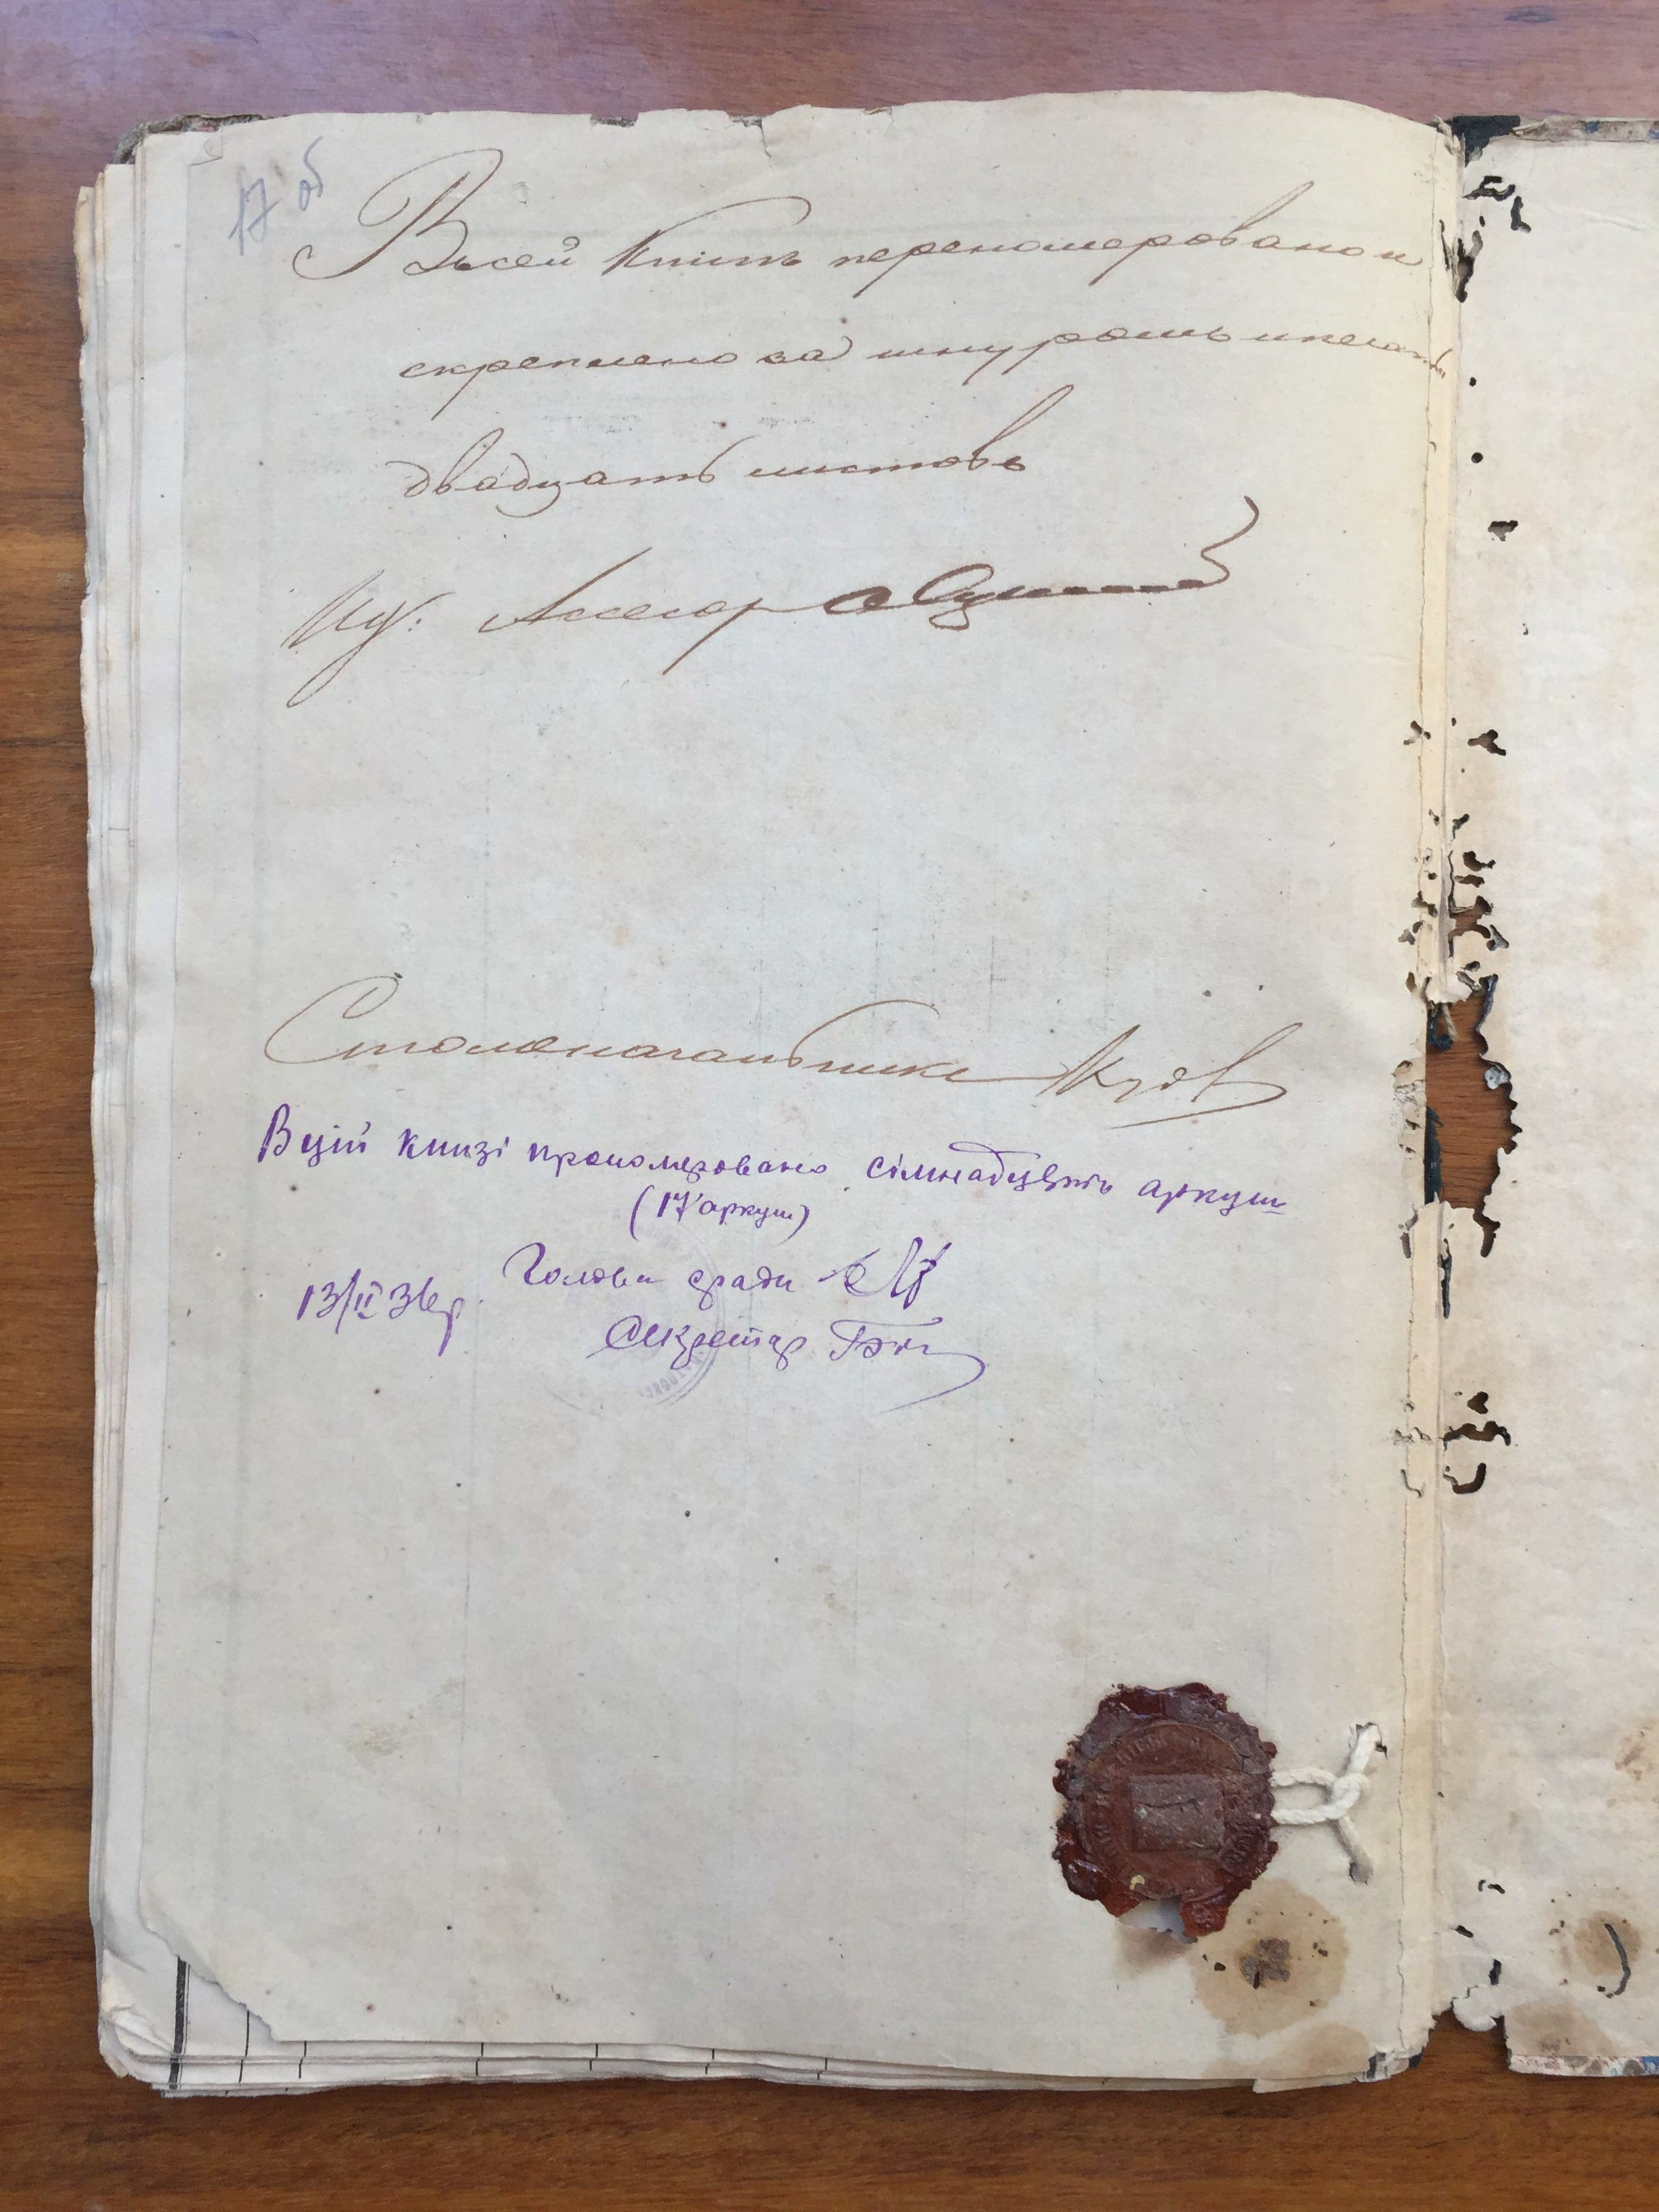 17 об
Въсей Книгѣ переномеровано и
скреплено за шнуромъ и печатью
двадцать листовъ
Асесор
Столоначальникъ
В цій книзі прономеровано сімнадцять аркуш
(17 аркуш)
Голова сради
13/II 36р.
Секретар